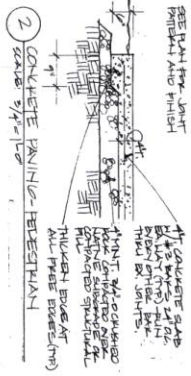 SEE PLAN FOR JOINT
PATTERN AND FINISH
4" CONCRETE SLAB
EA. WAY. STOP
EVERY OTHER BAR
THRU JOINTS.
4" MINT. 3/4" CRUSHED
ROCK COMPACTED OVER
NATIVE SUBGRADE OR
COMPACTED STRUCTURAL
FILL
THICKEN EDGE AT
ALL FREE EDGES (TYP)
2 CONCRETE PAVING - PEDESTRIAN
SCALE: 3/4" = 1'-0"